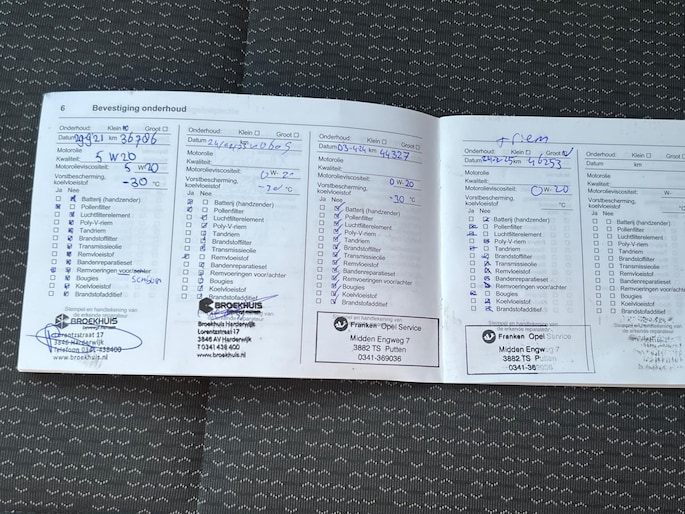 6 Bevestiging onderhoud
Onderhoud: Klein Groot
Datum 29921 km 36786
Motorolie
Kwaliteit: 5 W20
Motorolieviscositeit: 5 W20
Vorstbescherming,
koelvloeistof -30 °C
Ja Nee
Batterij (handzender)
Pollenfilter
Luchtfilterelement
Poly-V-riem
Tandriem
Brandstoffilter
Transmissieolie
Remvloeistof
Bandenreparatieset
Remvoeringen voor/achter
Bougies
Koelvloeistof
Brandstofadditief
Stempel en handtekening van
de erkende reparateur
BROEKHUIS
Lorentzstraat 17
3846 Harderwijk
Telefoon 0341-438400
www.broekhuis.nl
Onderhoud: Klein Groot
Datum km
Motorolie
Kwaliteit:
Motorolieviscositeit: 0 W-20
Vorstbescherming,
koelvloeistof °C
Ja Nee
Batterij (handzender)
Pollenfilter
Luchtfilterelement
Poly-V-riem
Tandriem
Brandstoffilter
Transmissieolie
Remvloeistof
Bandenreparatieset
Remvoeringen voor/achter
Bougies
Koelvloeistof
Brandstofadditief
BROEKHUIS
Broekhuis Harderwijk
Lorentzstraat 17
3846 AV Harderwijk
T 0341 438 400
www.broekhuis.nl
Onderhoud: Klein Groot
Datum 03-424 km 44327
Motorolie
Kwaliteit:
Motorolieviscositeit: 0 W-20
Vorstbescherming,
koelvloeistof -30 °C
Ja Nee
Batterij (handzender)
Pollenfilter
Luchtfilterelement
Poly-V-riem
Tandriem
Brandstoffilter
Transmissieolie
Remvloeistof
Bandenreparatieset
Remvoeringen voor/achter
Bougies
Koelvloeistof
Brandstofadditief
Stempel en handtekening van
Franken Opel Service
Midden Engweg 7
3882 TS Putten
0341-369036
+riem
Onderhoud: Klein Groot
Datum km 46253
Motorolie
Kwaliteit:
Motorolieviscositeit: 0 W-20
Vorstbescherming,
koelvloeistof °C
Ja Nee
Batterij (handzender)
Pollenfilter
Luchtfilterelement
Poly-V-riem
Tandriem
Brandstoffilter
Transmissieolie
Remvloeistof
Bandenreparatieset
Remvoeringen voor/achter
Bougies
Koelvloeistof
Brandstofadditief
Stempel en handtekening van
de erkende reparateur
Franken Opel Service
Midden Engweg 7
3882 TS Putten
0341-369036
Onderhoud: Klein
Datum km
Motorolie
Kwaliteit:
Motorolieviscositeit: W-
Vorstbescherming,
koelvloeistof °C
Ja Nee
Batterij (handzender)
Pollenfilter
Luchtfilterelement
Poly-V-riem
Tandriem
Brandstoffilter
Transmissieolie
Remvloeistof
Bandenreparatieset
Remvoeringen voor/achter
Bougies
Koelvloeistof
Brandstofadditief